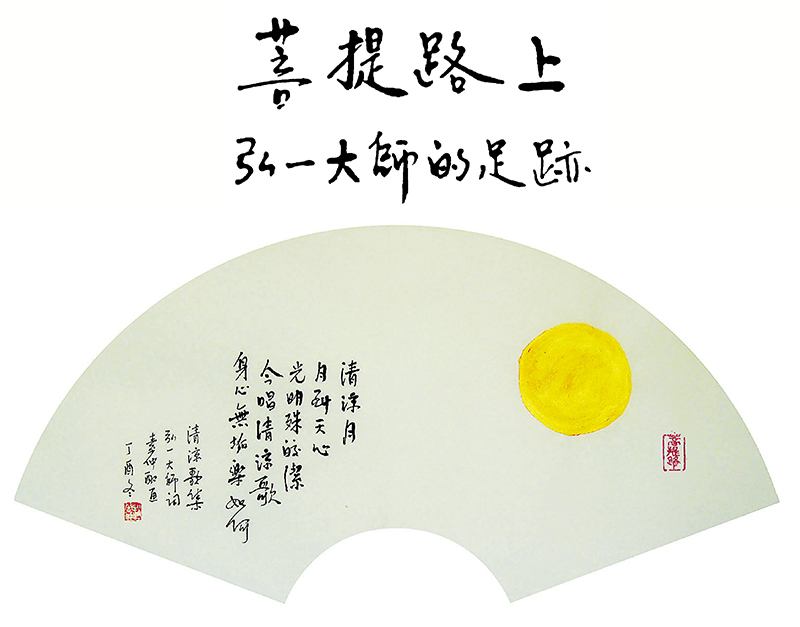 菩提路上
弘一大師的足跡
清涼月
月到天心
光明殊皎潔
今唱清涼歌
身心無垢樂如何
清涼歌集
弘一大師詞
素仲配画
丁酉冬
菩提路上